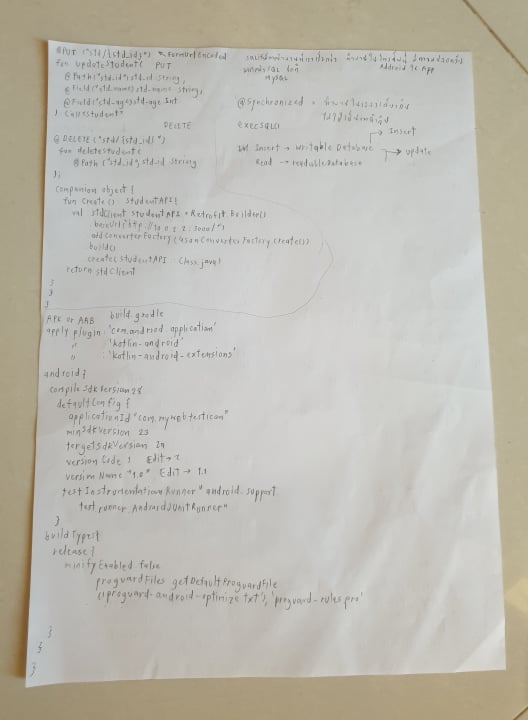 @PUT ("std/{std_id}") FormUrlEncoded
fun updateStudent( PUT
@Path("std_id") std_id String,
@Field("std_name") std_name String,
@Field("std_age") std_age Int
): Call<Student>
DELETE
@DELETE ("std/{std_id}")
fun deleteStudent(
@Path ("std_id") std_id String
);
companion object {
fun Create() StudentAPI{
val stdClient StudentAPI = Retrofit.Builder()
baseUrl("http://10.0.2.2:3000/")
addConverterFactory(GsonConverterFactory.create())
build()
create(StudentAPI :: Class.java)
return stdClient
}
}
}
Android ใน App
MySQL
@Synchronized =
execSQL()
Insert
Insert → Writable Database
update
Read → readableDatabase
APK or AAB build.gradle
apply plugin: 'com.android.application'
" : 'kotlin-android'
" : 'kotlin-android-extensions'
android {
compileSdkVersion 28
defaultConfig {
applicationId "com.mywebtestican"
minSdkVersion 23
targetSdkVersion
version Code 1 Edit → 2
version Name "1.0" Edit → 1.1
testInstrumentationRunner "android.support
test.runner.AndroidJUnitRunner"
}
buildTypes{
release {
minifyEnabled false
proguardFiles getDefaultProguardFile
('proguard-android-optimize.txt'), 'proguard-rules.pro'
}
}
}